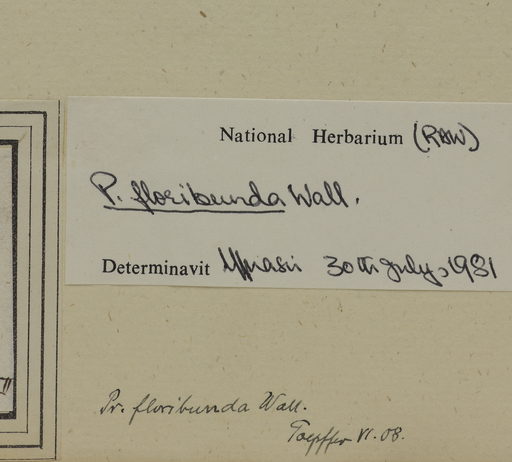 National Herbarium (RAW)
P. floribunda Wall.
Determinavit Y. Nasir 30th July, 1981
Pr. floribunda Wall.
Toepffer VI. 08.